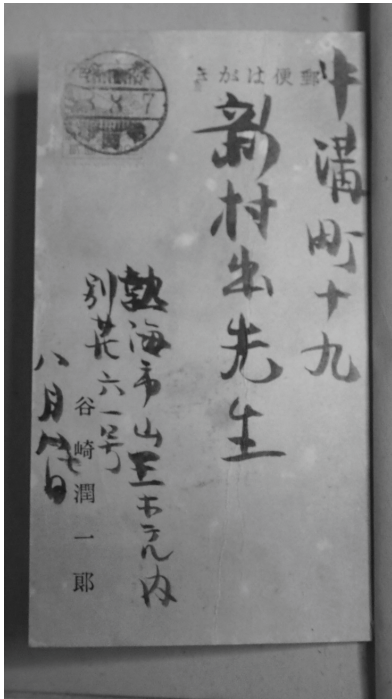 郵便はがき
中溝町十九
新村出先生
熱海市山王ホテル内
別荘六一号
谷崎潤一郎
八月 日